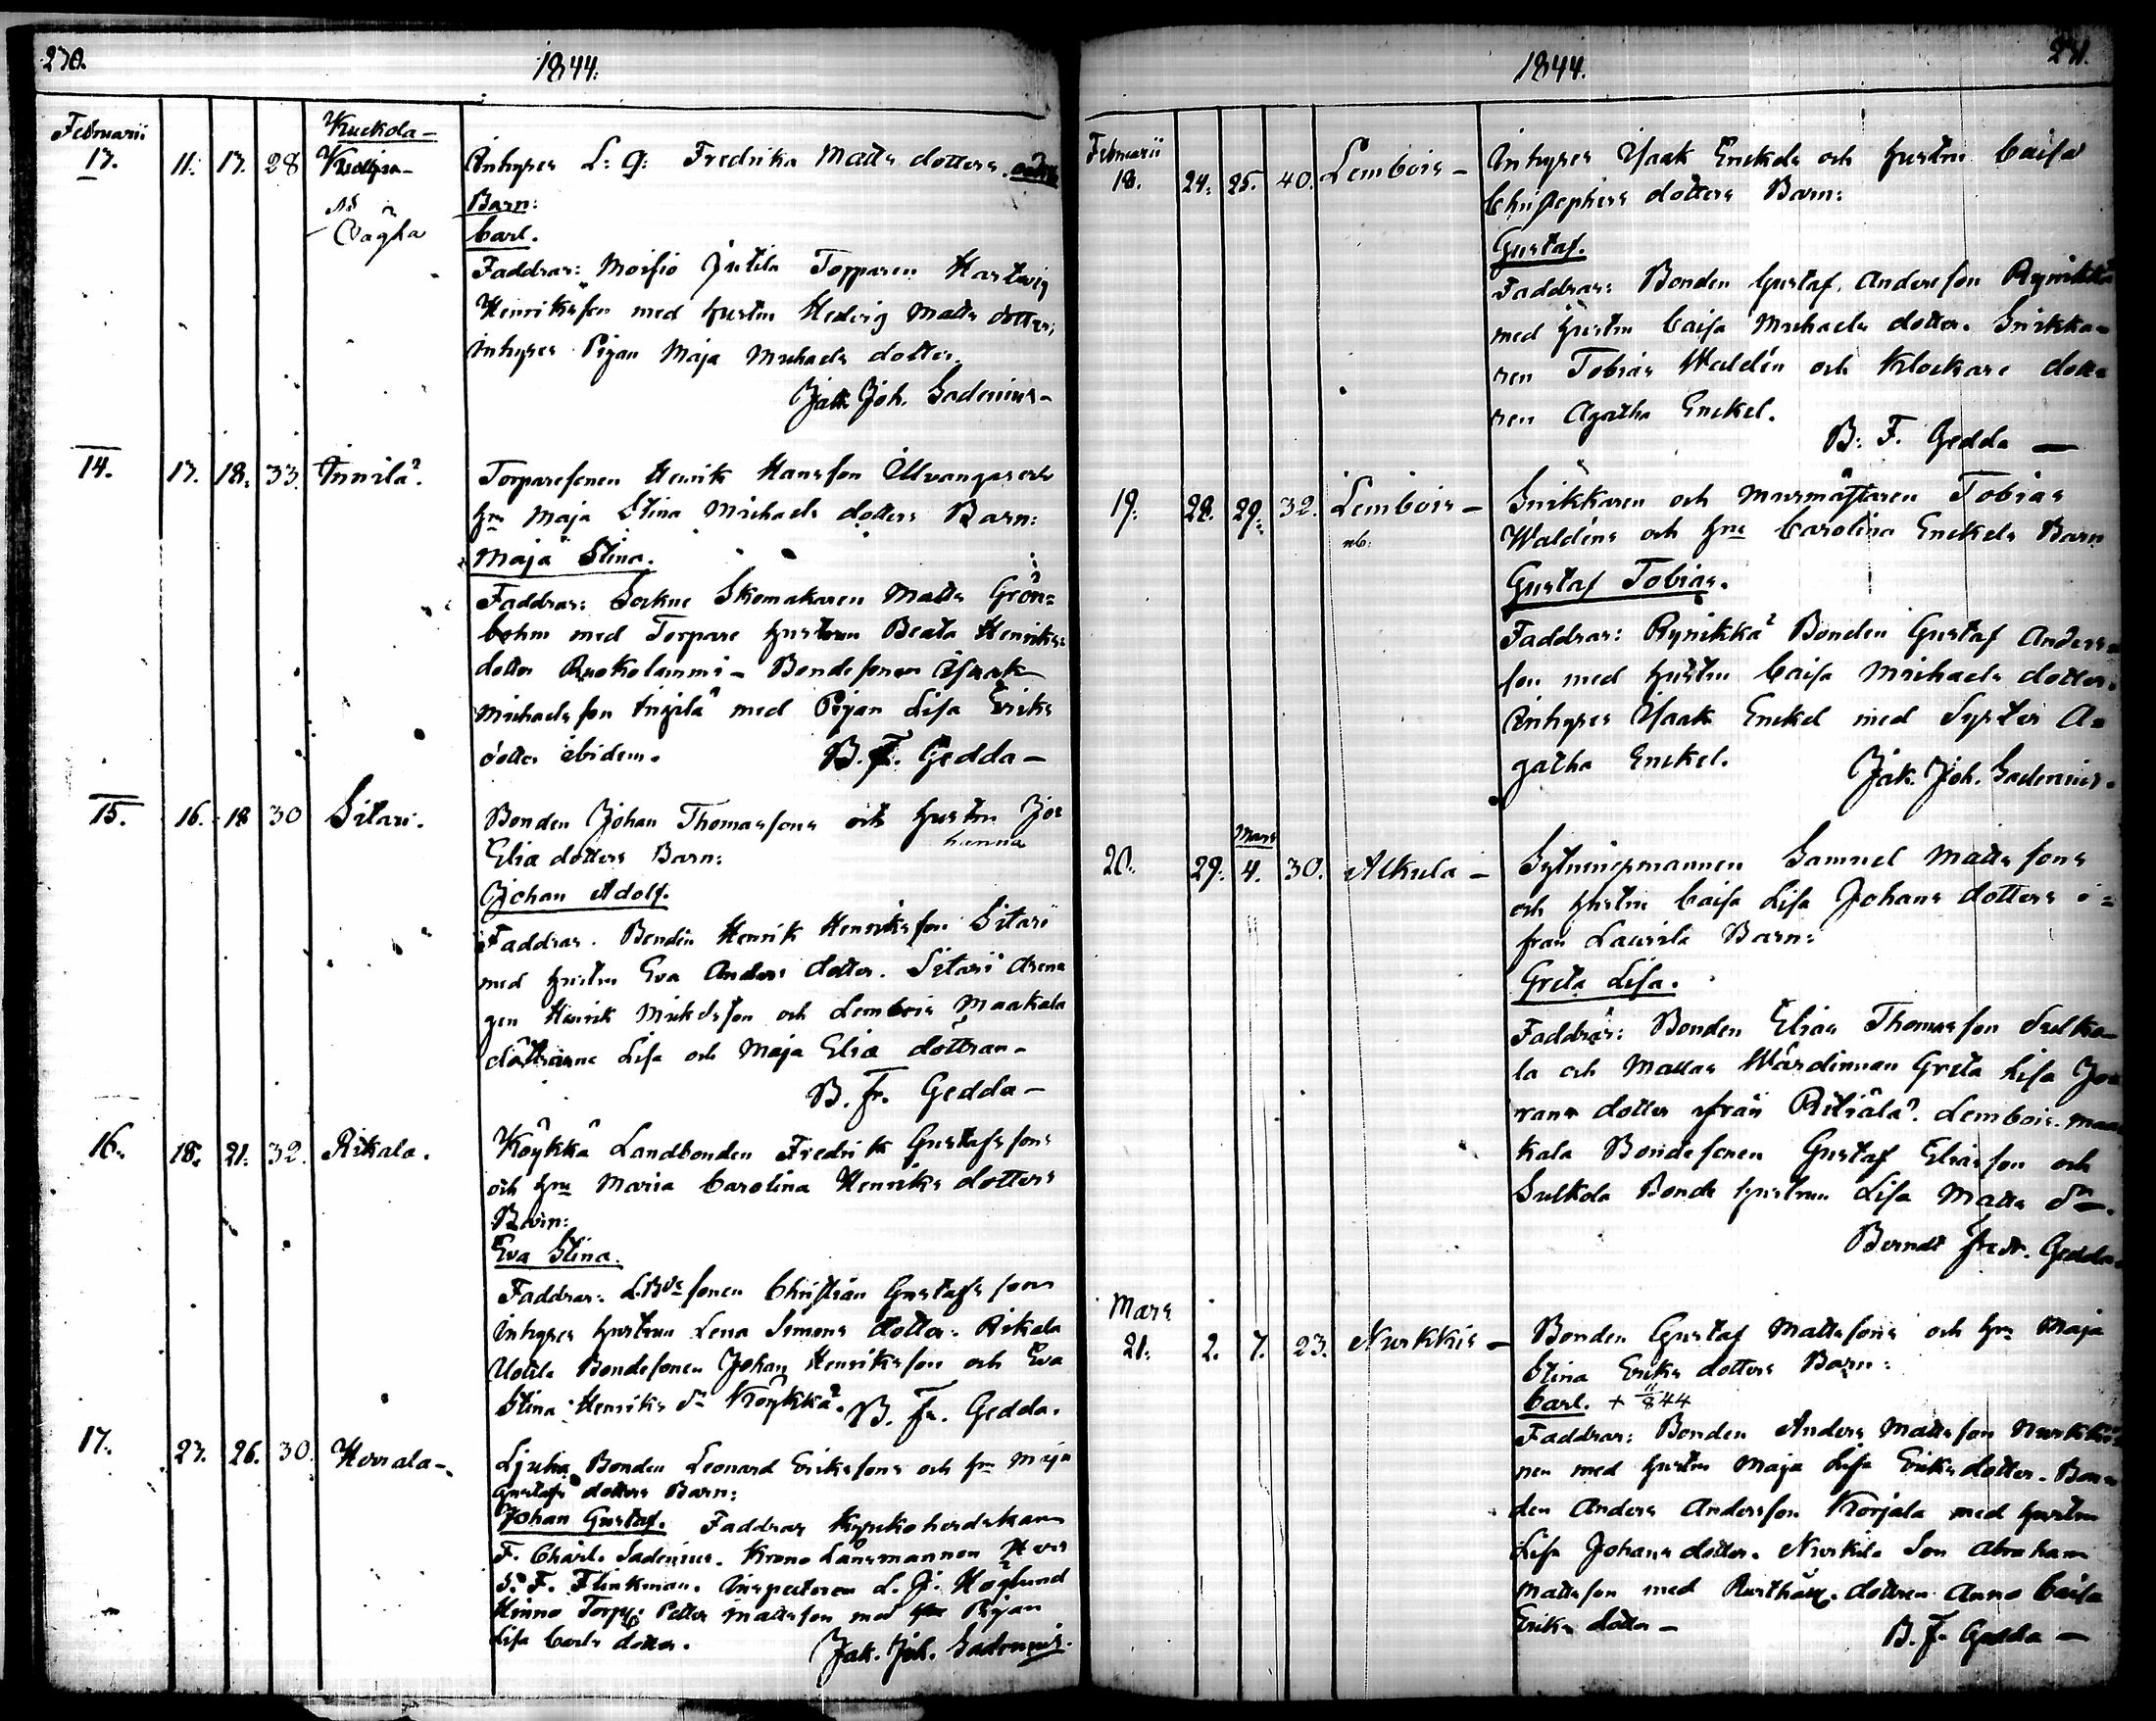 230.
1844.
Februarii
13. 11. 13. 28 Kuckola-
Inhyses L: Q: Fredrika Matts dotters
Barn:
Carl.
Faddrar: Moisio Jutila Torparen Hartwig
Henriksson med hustru Hedvig Matts dotter,
inhyses Pigan Maja Michaels dotter.
Jak. Joh. Sadenius-
14. 13. 18. 33. Innilä.
Torparesonen Henrik Hansson
hru Maja Stina Michaels dotters Barn:
Maja Stina.
Faddrar: Sockne Skomakaren Matts Grön=
bohm med Torpare hustrun Beata Henriks=
dotter Ruokolammi- Bondesonen Isaak
Michaelsson med Pigan Lisa Eriks
dotter ibidem. B. F. Gedda-
15. 16. 18 30 Sitari.
Bonden Johan Thomassons och hustru Jo=
hanna
Eliæ dotters Barn:
Johan Adolf.
Faddrar. Bonden Henrik Henriksson Sitari
med hustru Eva Anders dotter. Sitari drän=
gen Henrik Mickelsson och Lembois Maakala
döttrarne Lisa och Maja Eliæ döttrar-
B. Fr. Gedda-
16. 18. 21. 32. Rikala.
Köykkä Landbonden Fredrik Gustafssons
och hru Maria Carolina Henriks dotters
Barn:
Eva Stina.
Faddrar: L.Bde sonen Christian Gustafsson
inhyses hustrun Lena Simons dotter. Rikala
Uotila Bondesonen Johan Henriksson och Eva
Stina Henriks dr Köykkä. B. Fr. Gedda.
17. 23. 26. 30. Horrala-
Bonden Leonard Erikssons och hru Maja
Gustafs dotters Barn:
Johan Gustaf. Faddrar Kyrkoherdskan
F. Charl. Sadenius. Krono Länsmannen Herr
S. F. Flinkman. Inspectoren L. J. Höglund
Hinno Torp: Petter Mattsson med Pigan
Lisa Carls dotter. Jak. Joh. Sadenius.
1844.
231.
Februarii
18. 24. 25. 40. Lembois-
Inhyses Isaak Enckels och hustru Caisa
Christophers dotters Barn:
Gustaf.
Faddrar: Bonden Gustaf Andersson Rynikkä
med hustru Caisa Michaels dotter. Snikka=
ren Tobias Waldén och Klockare dott=
ren Agatha Enckel.
B. F. Gedda -
19. 28. 29. 32. Lembois-
nb.
Snikkaren och Murmästaren Tobias
Waldéns och hru Carolina Enckels Barn
Gustaf Tobias.
Faddrar: Rynikkä Bonden Gustaf Anders=
son med hustru Caisa Michaels dotter.
Inhyses Isaak Enckel med Syster A=
gatha Enckel. Jak. Joh. Sadenius.
Mars
20. 29. 4. 30. Alkula-
Sytningsmannen Samuel Mattssons
och hustru Caisa Lisa Johans dotters i=
från Laurila Barn:
Greta Lisa.
Faddrar: Bonden Elias Thomasson Sulko=
la och Mattas Wärdinnan Greta Lisa Jo=
hans dotter från Lembois Maa=
kala Bondesonen Gustaf Eliasson och
Sulkola Bonde hustrun Lisa Matts dr.
Berndt Fredr. Gedda.
Mars
21. 2. 7. 23. Nurkkis-
Bonden Gustaf Mattssons och hru Maja
Stina Eriks dotters Barn:
Carl. + 11/8 44
Faddrar: Bonden Anders Mattsson
nen med hustru Maja Lisa Eriksdotter. Bon=
den Anders Andersson Korjala med hustru
Lisa Johansdotter. Son Abraham
Mattsson med dottren Anna Caisa
Eriks dotter- B. F. Gedda -